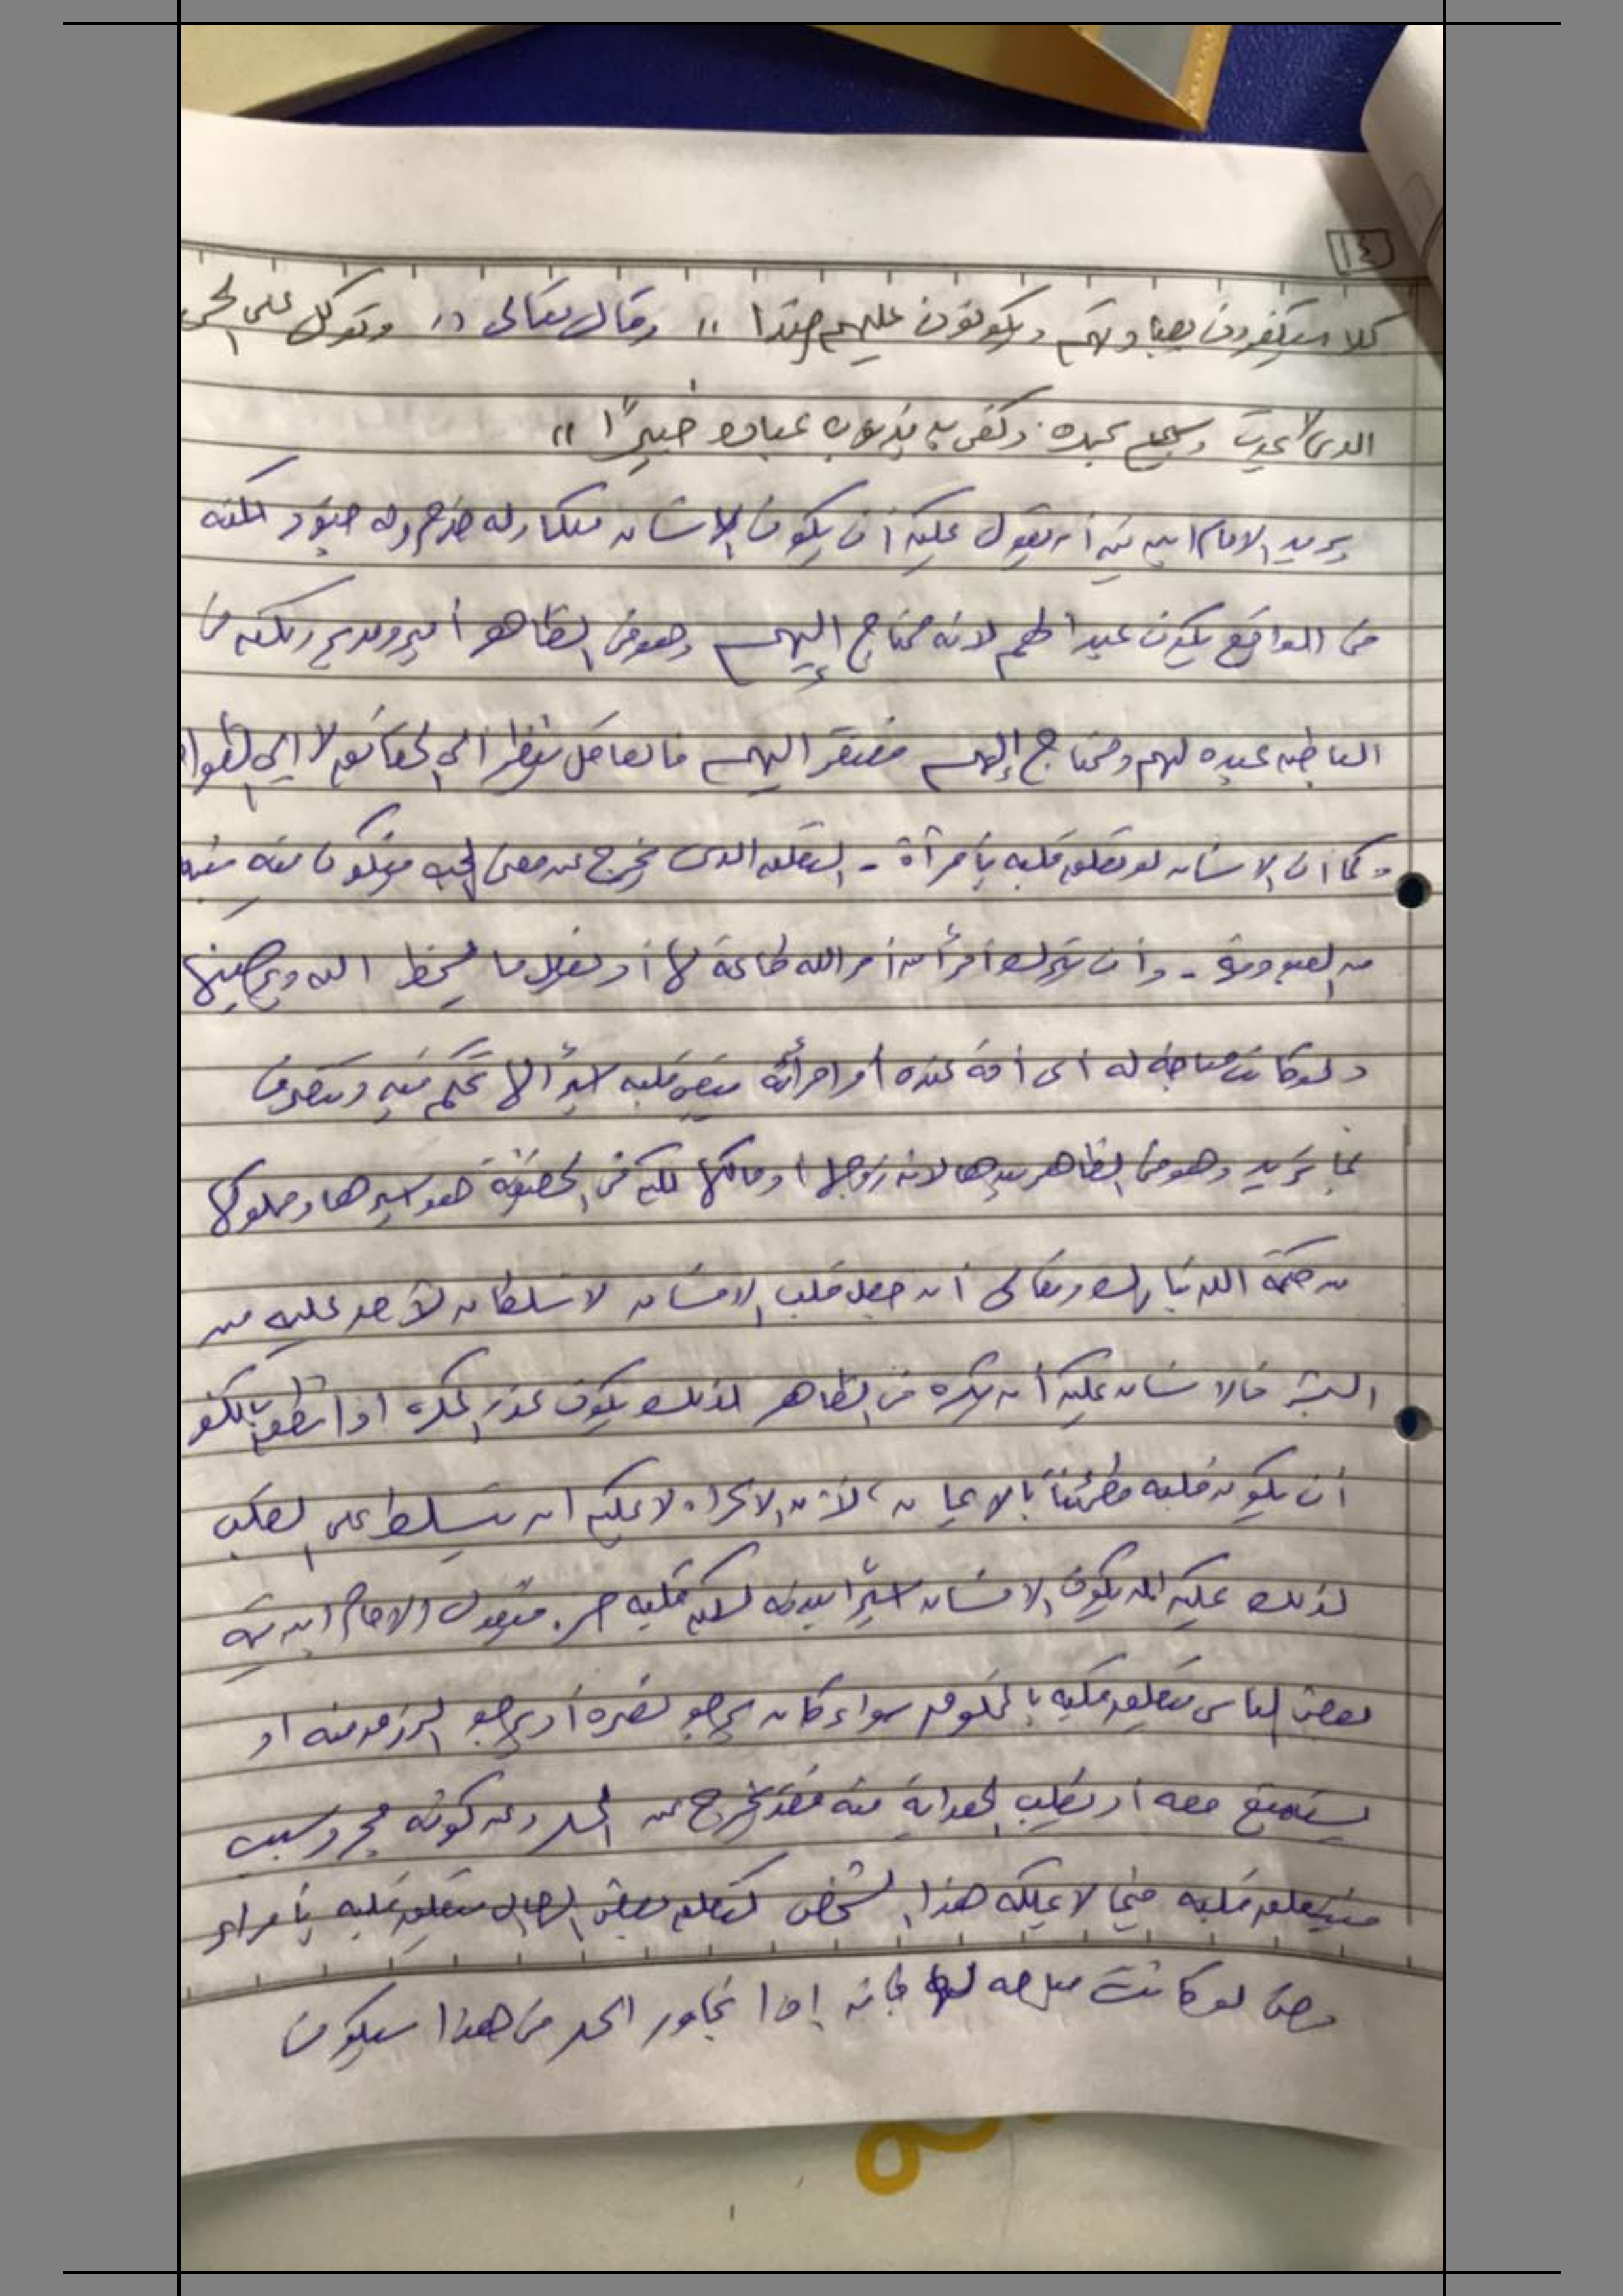 ١٤
كلا سيكفرون بعبادتهم ويكونون عليهم ضدا " وقال تعالى " وتوكل على الحى
الذى لا يموت وسبح بحمده وكفى به بذنوب عباده خبيرًا "
يريد الامام ابن تيمية أن يقول يمكن أن يكون الانسان ملكا وله خدم وله جنود لكنه
فى الواقع يكون عبدا لهم لانه محتاج إليهم وهو فى الظاهر أمير ومدبر ولكنه فى
الباطن عبده لهم ومحتاج إليهم مفتقر اليهم فالعاقل ينظر الى الحقائق لا الى الظواهر
وكما ان الانسان لو تعلق قلبه بأمرأة - التعلق الذى يخرج عن معنى الحب فيكون فيه شبه
من العبودية - وأن يترك أمرا من أمر الله طاعة لها أو يفعل ما يسخط الله ويرضيها
ولو كانت مباحة له اى أمة عنده أو امرأته يبقى قلبه اسيرًا لها تحكم فيه وتتصرف
بما تريد وهو فى الظاهر سيدها لانه زوجها أو مالكها لكنه فى الحقيقة هو اسيرها ومملوكها
من حكمة الله تبارك وتعالى أن جعل قلب الانسان لا سلطان لأحد عليه من
البشر فالانسان يمكن أن يكره فى الظاهر لذلك يكون عذر المكره اذا نطق بالكفر
أن يكون قلبه مطمئنًا بالايمان ، لأن الاكراه لا يمكن ان يتسلط على القلب
لذلك يمكن ان يكون الانسان اسيرًا ببدنه لكن قلبه حر . فيقول الامام ابن تيمية
بعض الناس يتعلق قلبه بالمخلوق سواء كان يرجو نصره أو يرجو الرزق منه او
يستمتع معه أو يطلب الهداية منه فقد يخرج عن الحد وعن كونه مجرد سبب
فيتعلق قلبه فيما لا يملكه هذا الشخص كتعلق بعض الرجال يتعلق قلبه بأمراه
وحتى لو كانت مباحه له فانه إذا تجاوز الحد فى هذا سيكون